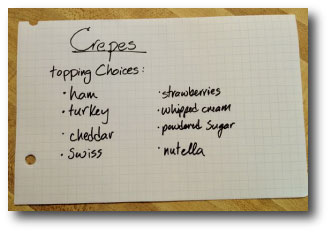 Crepes
topping Choices:
• ham
• turkey
• cheddar
• Swiss
• strawberries
• whipped cream
• powdered Sugar
• nutella